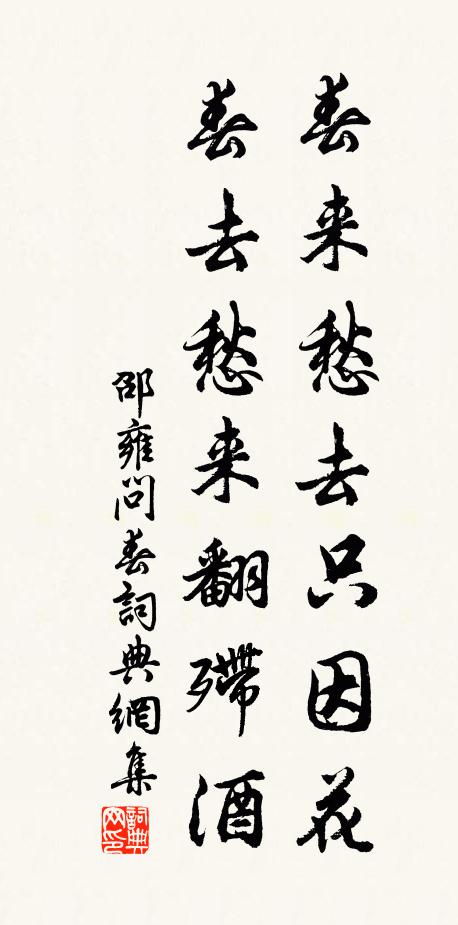 春来愁去只因花
春去愁来翻殢酒
邵雍問春詞典網集
詞典网印